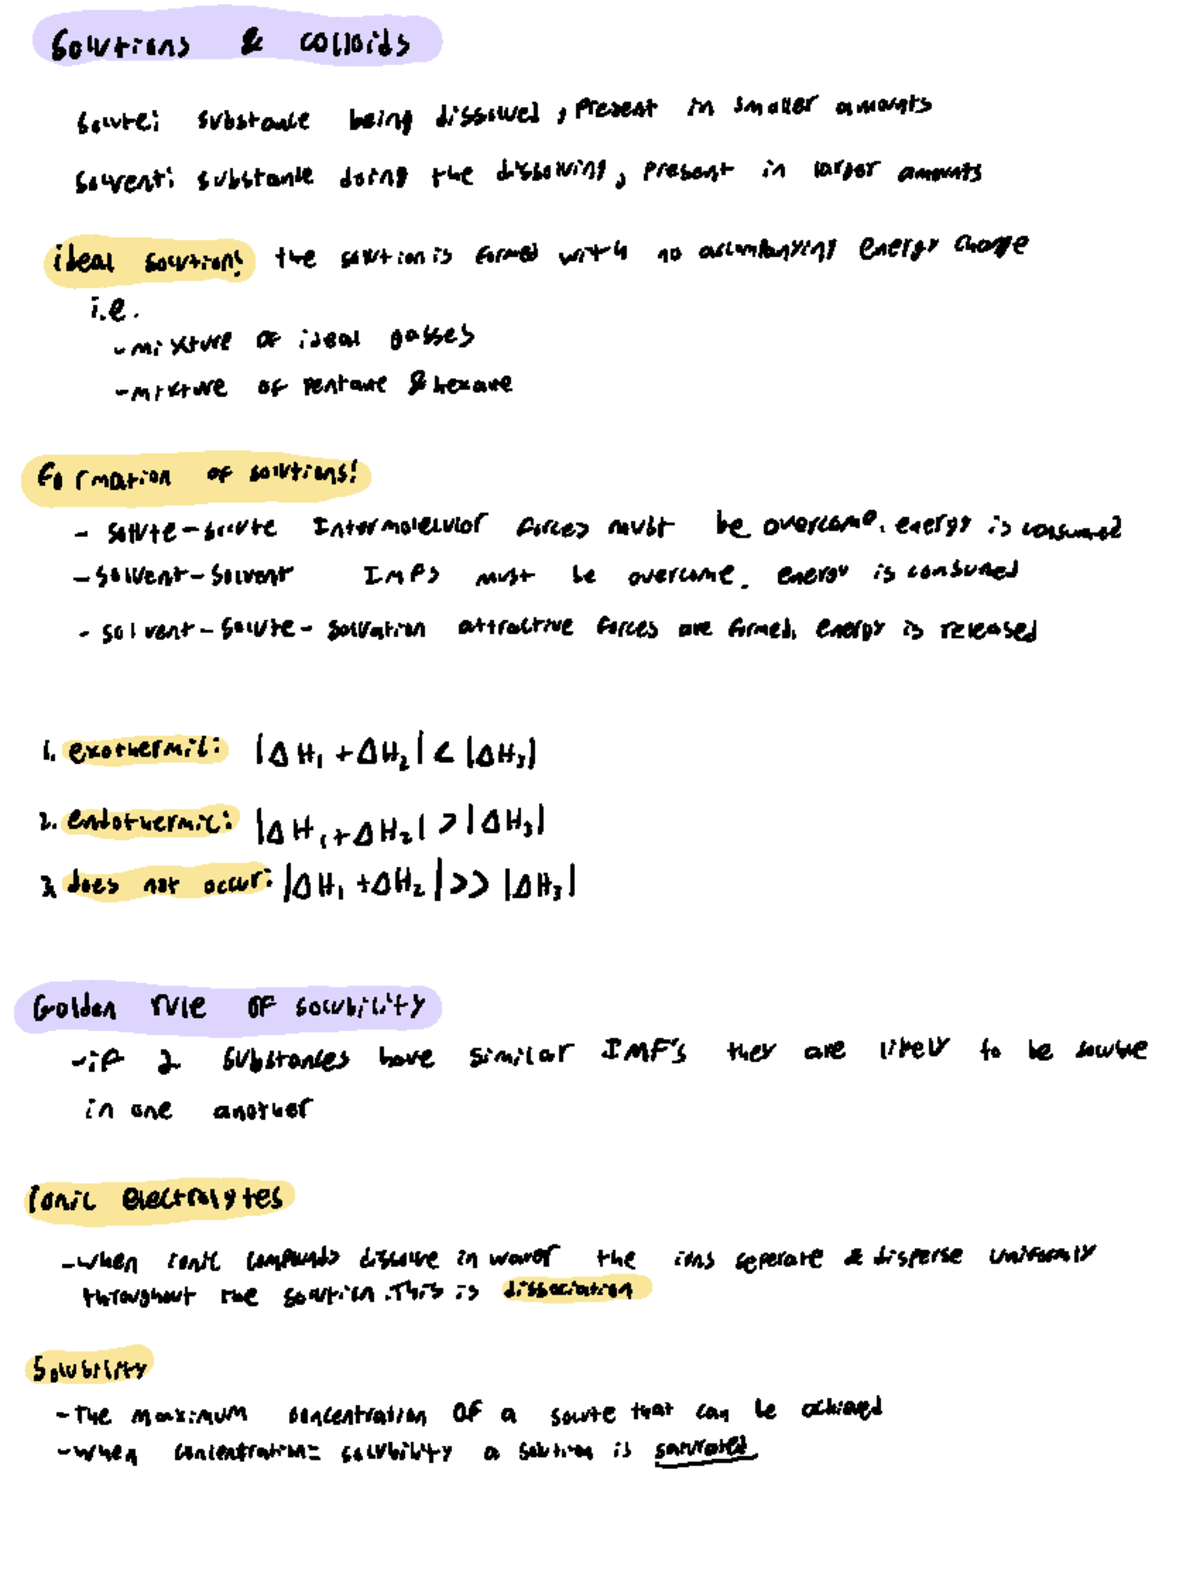 Solutions & colloids
Solute: substance being dissolved, present in smaller amounts
Solvent: substance doing the dissolving, present in larger amounts
ideal solutions the solution is formed with no accompanying energy change
i.e.
- mixture of ideal gasses
- mixture of pentane & hexane
Formation of solutions!
- solute-solute Intermolecular forces must be overcome. energy is consumed
- Solvent-Solvent IMFs must be overcome. energy is consumed
- solvent-solute- solvation attractive forces are formed. energy is released
1. exothermic: |ΔH₁ + ΔH₂| < |ΔH₃|
2. endothermic: |ΔH₁ + ΔH₂| > |ΔH₃|
3. does not occur: |ΔH₁ + ΔH₂| >> |ΔH₃|
Golden rule of solubility
- if 2 substances have similar IMF's they are likely to be soluble
in one another
Ionic electrolytes
- when ionic compounds dissolve in water the ions seperate & disperse uniformly
throughout the solution. This is dissociation
Solubility
- The maximum concentration of a solute that can be achieved
- when concentration = solubility a solution is saturated.